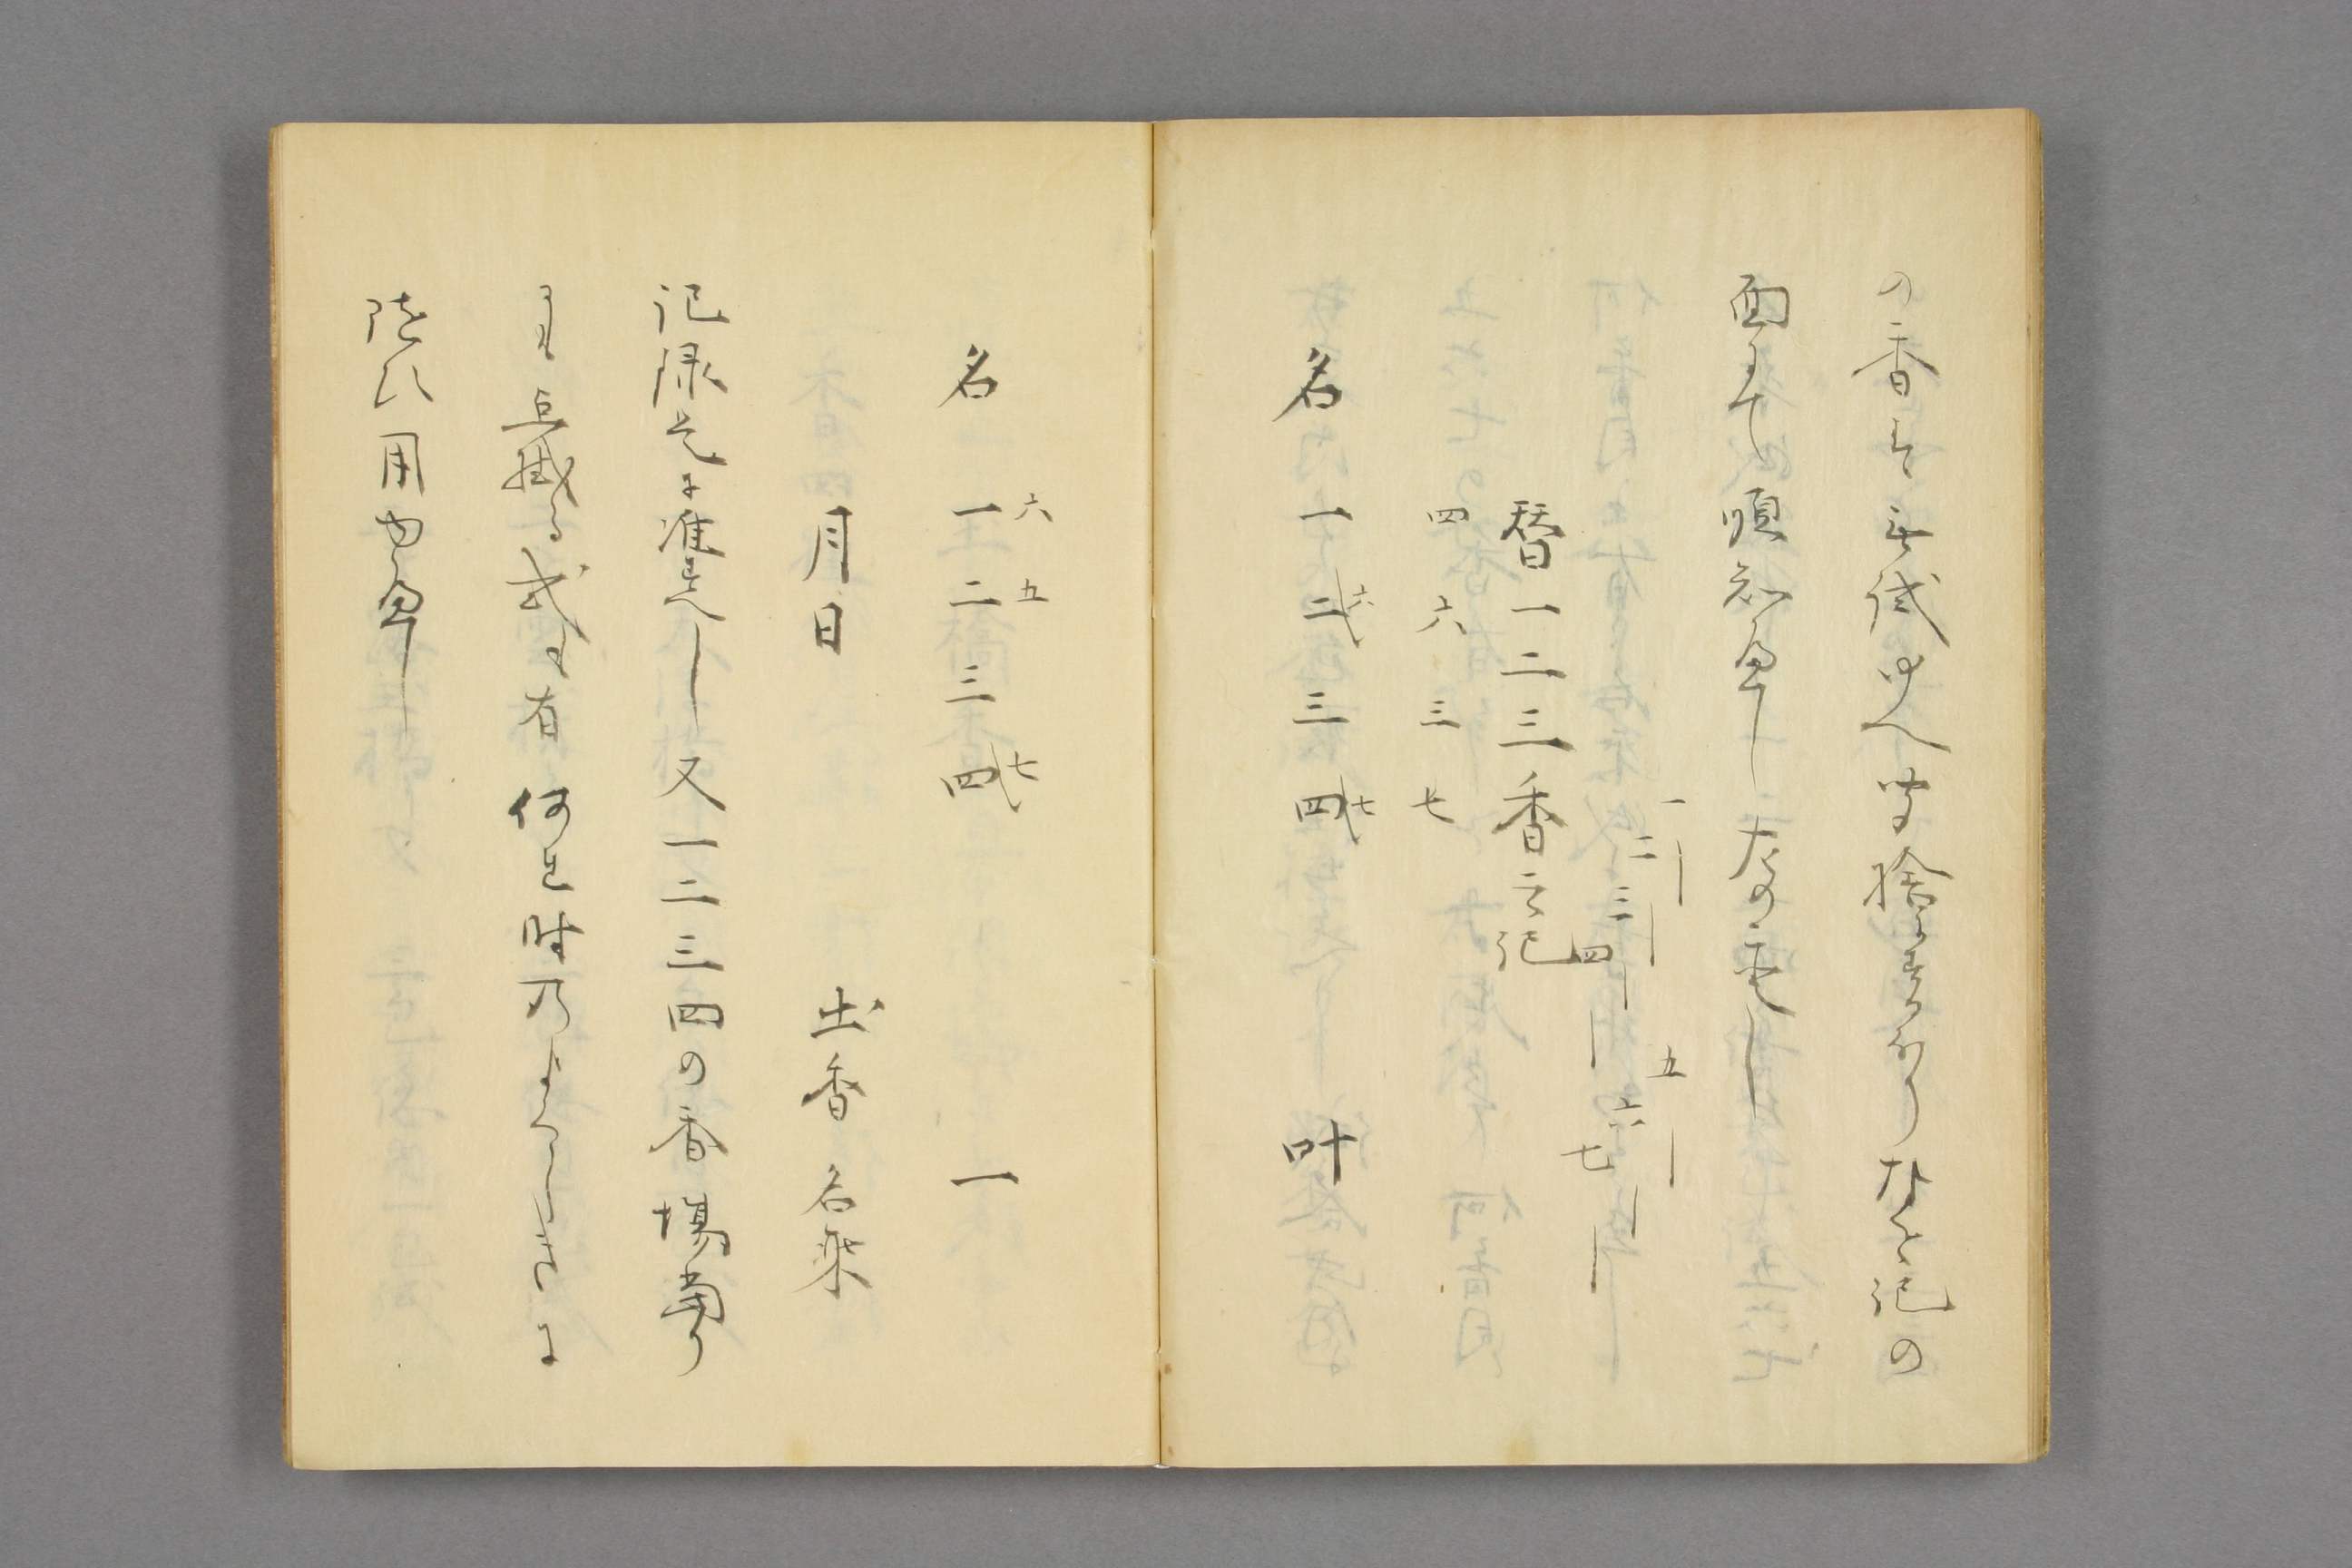 の香は無試ゆへ聞捨るなり右之記の
面にて順知へし左の如し
一 二 三 四 五 六 七
替一二三香之記
四 六 三 七
名 一 二 六 三 四 七 叶
名 一 六 二 五 三 四 七 一
月日 出香 名乗
記録是に准すへし又一二三四の香場当り
に点掛る式も有何も時の
随ひ用ゆへし